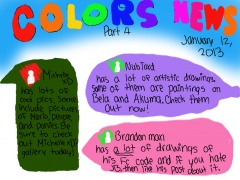 COLORS NEWS
Part 4
January 12,
2013
Michelle
has lots of
cool pics. Some
include pictures
of Herb, Peace,
and ponies. Be
sure to check
out Michelle's
gallery today!
NubToad
has a lot of artistic drawings.
Some of them are paintings on
Bela and Akuma. Check them
out now!
Brandon man
has a lot of drawings of
his Fc code and if you hate
JB then like his post about it.